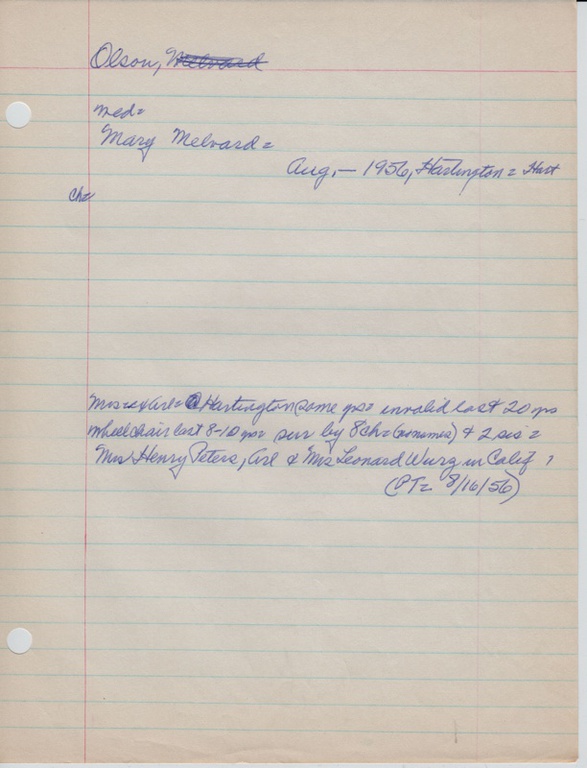 Olson, Melvard
med=
Mary Melvard=
Aug, — 1956, Hartington= Hart
ch=
Mrs= ex Arl= @ Hartington some yrs= invalid last 20 yrs
wheelchair last 8-10 yrs= surv by 8ch= (no names) & 2 sis=
Mrs Henry Peters, Arl & Mrs Leonard Wurz in Calif
(PT= 8/16/56)